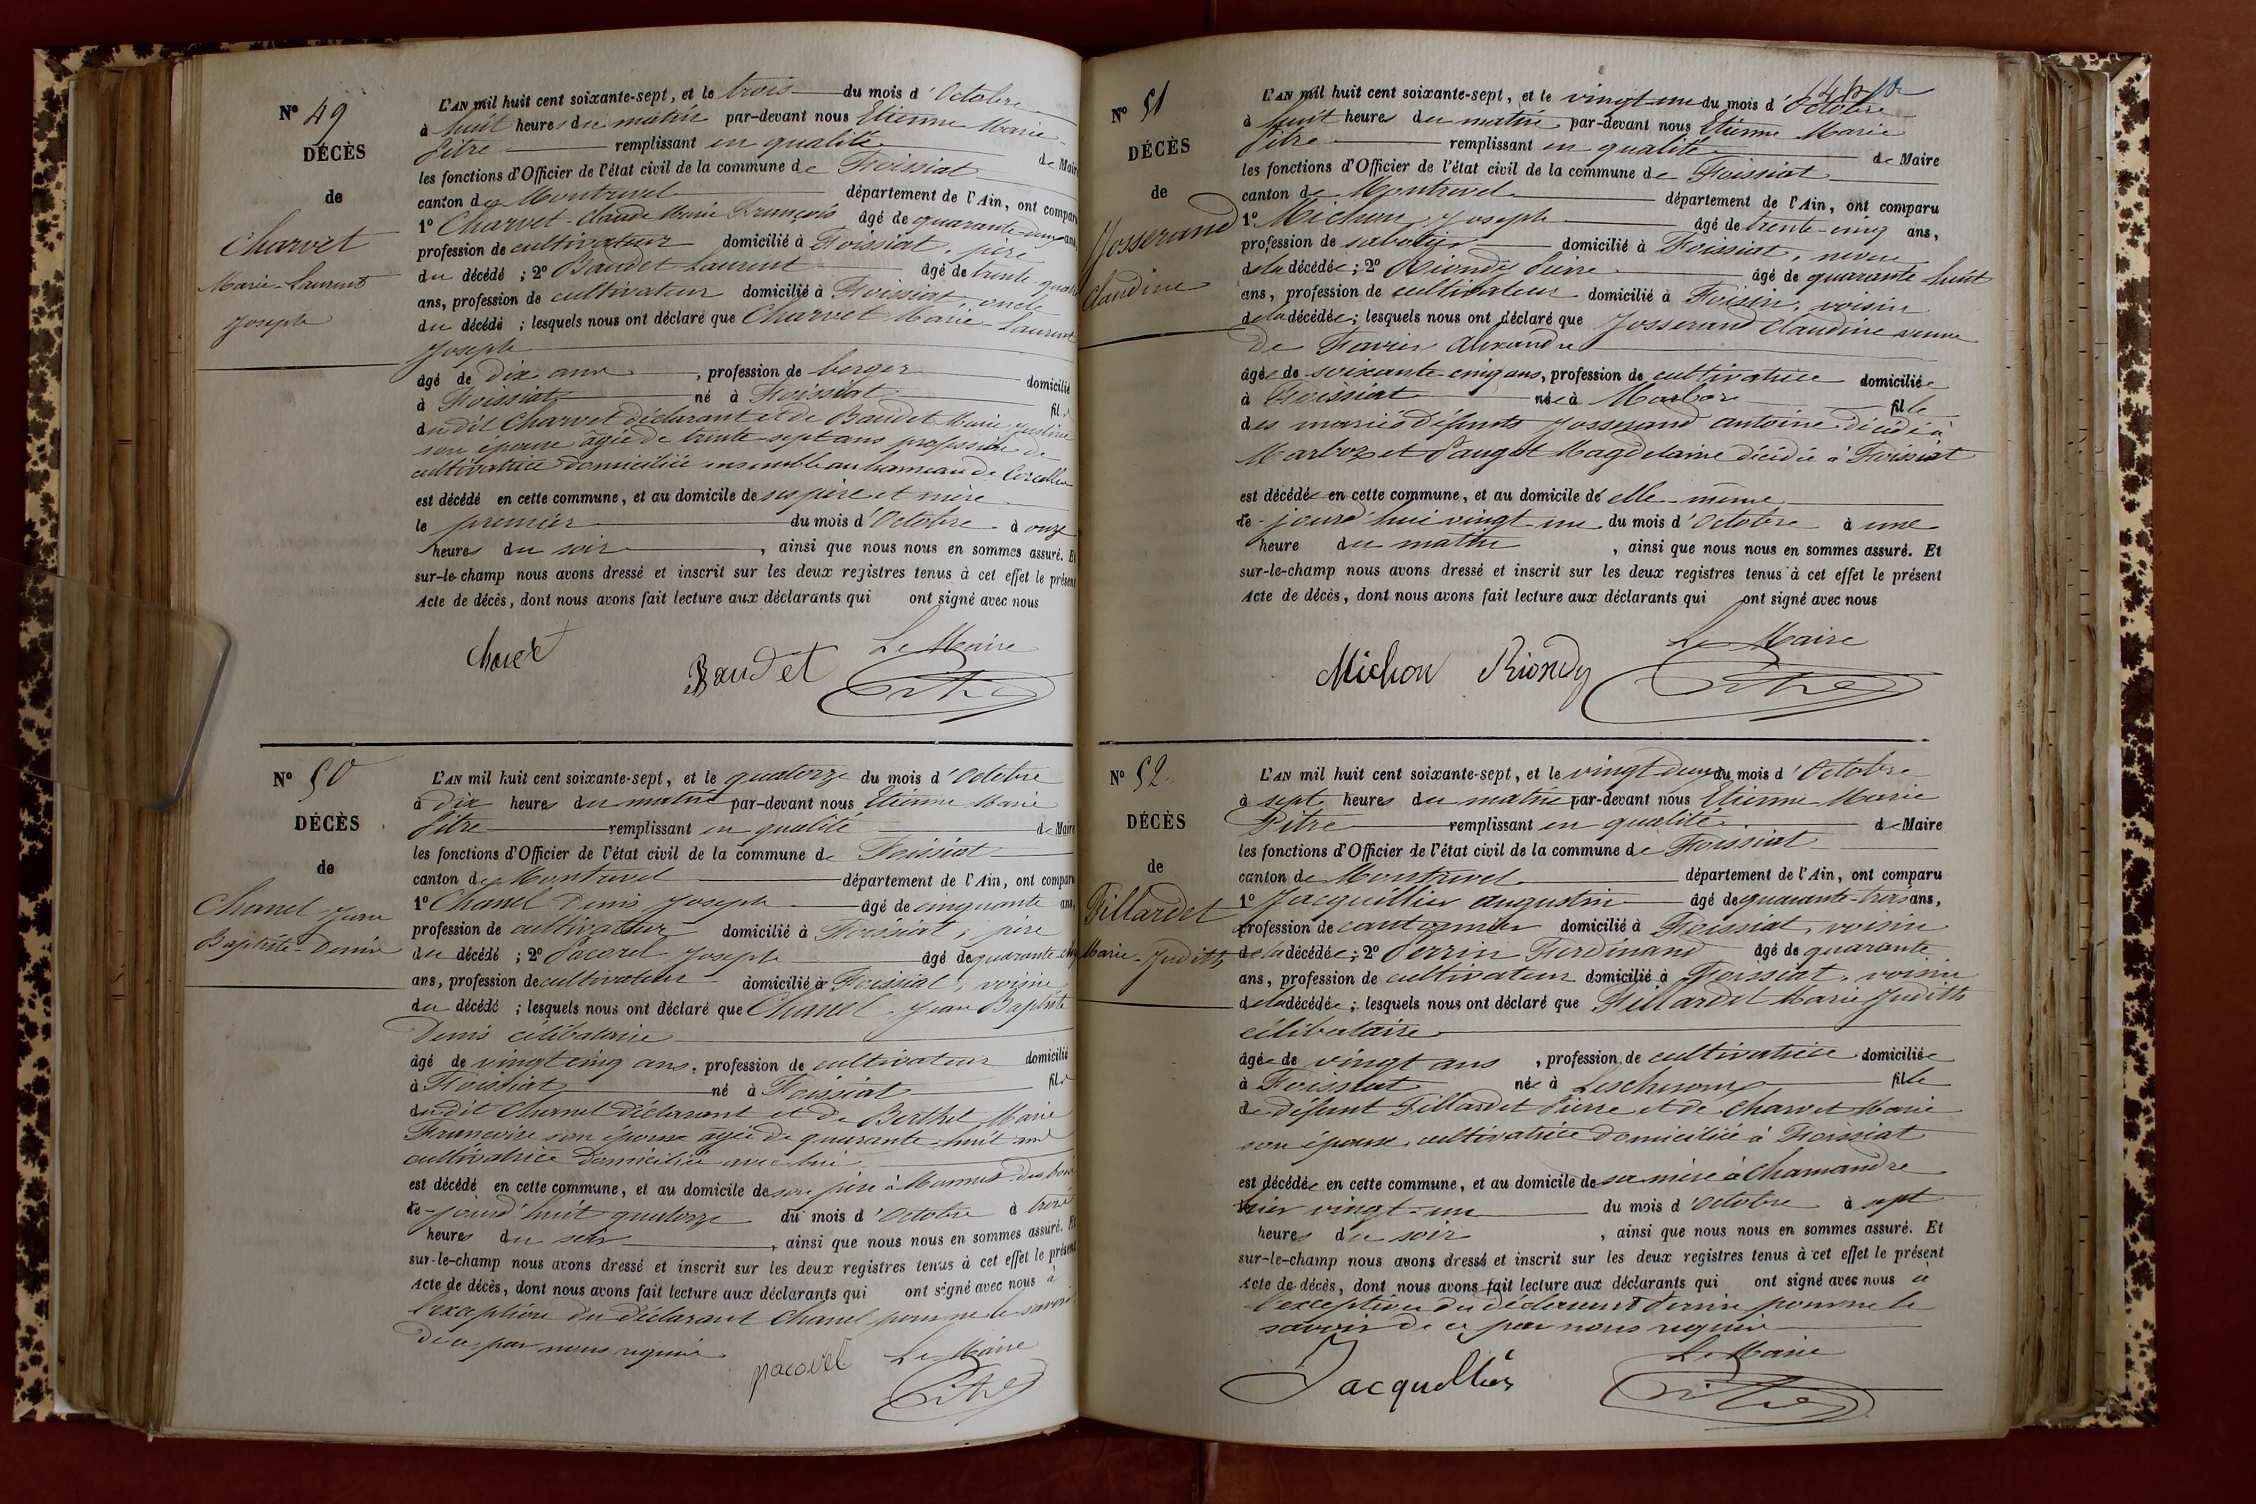 Nº 49
DÉCÈS
de
Charvet
Marie-Laurent
Joseph
L'AN mil huit cent soixante-sept, et le trois du mois d'Octobre
à huit heures du matin par-devant nous Etienne Marie
Pitre remplissant en qualité de Maire
les fonctions d'Officier de l'état civil de la commune de Foissiat
canton de Montrevel département de l'Ain, ont comparu
1º Charvet Claude Marie François âgé de quarante deux ans
profession de cultivateur domicilié à Foissiat, père
du décédé ; 2º Baudet Laurent âgé de trente-quatre
ans, profession de cultivateur domicilié à Foissiat, oncle
du décédé ; lesquels nous ont déclaré que Charvet Marie-Laurent
Joseph
âgé de dix ans, profession de berger domicilié
à Foissiat né à Foissiat fils
dudit Charvet déclarant et de Baudet Marie Justine
son épouse âgée de trente sept ans profession de
cultivatrice domiciliée ensemble au hameau de
est décédé en cette commune, et au domicile de ses père et mère
le premier du mois d'Octobre à onze
heures du soir, ainsi que nous nous en sommes assuré. Et
sur-le-champ nous avons dressé et inscrit sur les deux registres tenus à cet effet le présent
Acte de décès, dont nous avons fait lecture aux déclarants qui ont signé avec nous
Le Maire
Charvet Baudet Pitre
Nº 50
DÉCÈS
de
Chanel Jean
Baptiste-Denis
L'AN mil huit cent soixante-sept, et le quatorze du mois d'Octobre
à dix heures du matin par-devant nous Etienne Marie
Pitre remplissant en qualité de Maire
les fonctions d'Officier de l'état civil de la commune de Foissiat
canton de Montrevel département de l'Ain, ont comparu
1º Chanel Denis Joseph âgé de cinquante ans,
profession de cultivateur domicilié à Foissiat, père
du décédé ; 2º Pacorel Joseph âgé de quarante-cinq
ans, profession de cultivateur domicilié à Foissiat, voisin
du décédé ; lesquels nous ont déclaré que Chanel Jean Baptiste
Denis célibataire
âgé de vingt cinq ans, profession de cultivateur domicilié
à Foissiat né à Foissiat fils
dudit Chanel déclarant et de Berthet Marie
Françoise son épouse âgée de quarante-huit ans
cultivatrice domiciliée avec lui
est décédé en cette commune, et au domicile de son père à
le jourd'huit quatorze du mois d'Octobre à trois
heures du, ainsi que nous nous en sommes assuré. Et
sur-le-champ nous avons dressé et inscrit sur les deux registres tenus à cet effet le présent
Acte de décès, dont nous avons fait lecture aux déclarants qui ont signé avec nous à
l'exception du déclarant Chanel pour ne le savoir
de ce par nous requis
Le Maire
pacorel Pitre
Nº 51
DÉCÈS
de
Josserand
Claudine
L'AN mil huit cent soixante-sept, et le vingt-un du mois d'Octobre
à huit heures du matin par-devant nous Etienne Marie
Pitre remplissant en qualité de Maire
les fonctions d'Officier de l'état civil de la commune de Foissiat
canton de Montrevel département de l'Ain, ont comparu
1º Michon Joseph âgé de trente-cinq ans,
profession de sabotier domicilié à Foissiat, neveu
de la décédée ; 2º Riondy Pierre âgé de quarante huit
ans, profession de cultivateur domicilié à voisin
de la décédée ; lesquels nous ont déclaré que Josserand Claudine veuve
de Favier Alexandre
âgée de soixante cinq ans, profession de cultivatrice domiciliée
à Foissiat née à Marboz fille
des mariés défunts Josserand Antoine décédé à
Marboz et Magdelaine décédée à Foissiat
est décédée en cette commune, et au domicile de elle-même
le jourd'hui vingt-un du mois d'Octobre à une
heure du matin, ainsi que nous nous en sommes assuré. Et
sur-le-champ nous avons dressé et inscrit sur les deux registres tenus à cet effet le présent
Acte de décès, dont nous avons fait lecture aux déclarants qui ont signé avec nous
Le Maire
Michon Riondy Pitre
Nº 52
DÉCÈS
de
Fillardet
Marie-Judith
L'AN mil huit cent soixante-sept, et le vingt deux du mois d'Octobre
à sept heures du matin par-devant nous Etienne Marie
Pitre remplissant en qualité de Maire
les fonctions d'Officier de l'état civil de la commune de Foissiat
canton de Montrevel département de l'Ain, ont comparu
1º Jacquillier Augustin âgé de quarante-trois ans,
profession de cantonnier domicilié à Foissiat, voisin
de la décédée ; 2º Perrin Ferdinand âgé de quarante
ans, profession de cultivateur domicilié à Foissiat, voisin
de la décédée ; lesquels nous ont déclaré que Fillardet Marie Judith
célibataire
âgée de vingt ans, profession de cultivatrice domiciliée
à Foissiat née à Lescheroux fille
de défunt Fillardet Pierre et de Charvet Marie
son épouse cultivatrice domiciliée à Foissiat
est décédée en cette commune, et au domicile de sa mère à Chamandre
hier vingt-un du mois d'Octobre à sept
heures du soir, ainsi que nous nous en sommes assuré. Et
sur-le-champ nous avons dressé et inscrit sur les deux registres tenus à cet effet le présent
Acte de décès, dont nous avons fait lecture aux déclarants qui ont signé avec nous à
l'exception du déclarant Perrin pour ne le
savoir de ce par nous requis
Le Maire
Jacquillier Pitre